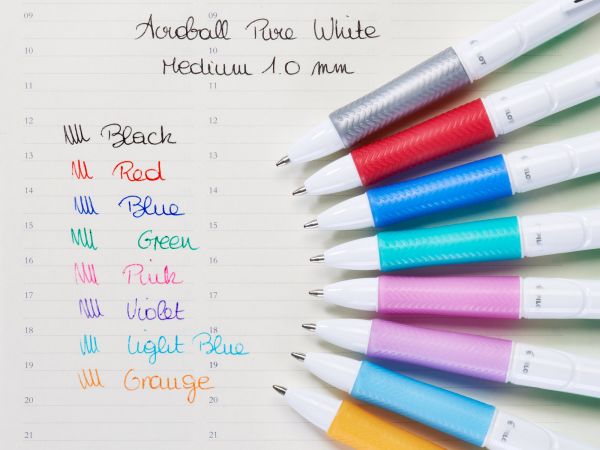 09 09
Acroball Pure White
10 10
Medium 1.0 mm
11 11
12 12
Black
13 13
Red
14 14
Blue
15 15
Green
16 16
Pink
17 17
Violet
18 18
Light Blue
19 19
Orange
20 20
21 21
PILOT